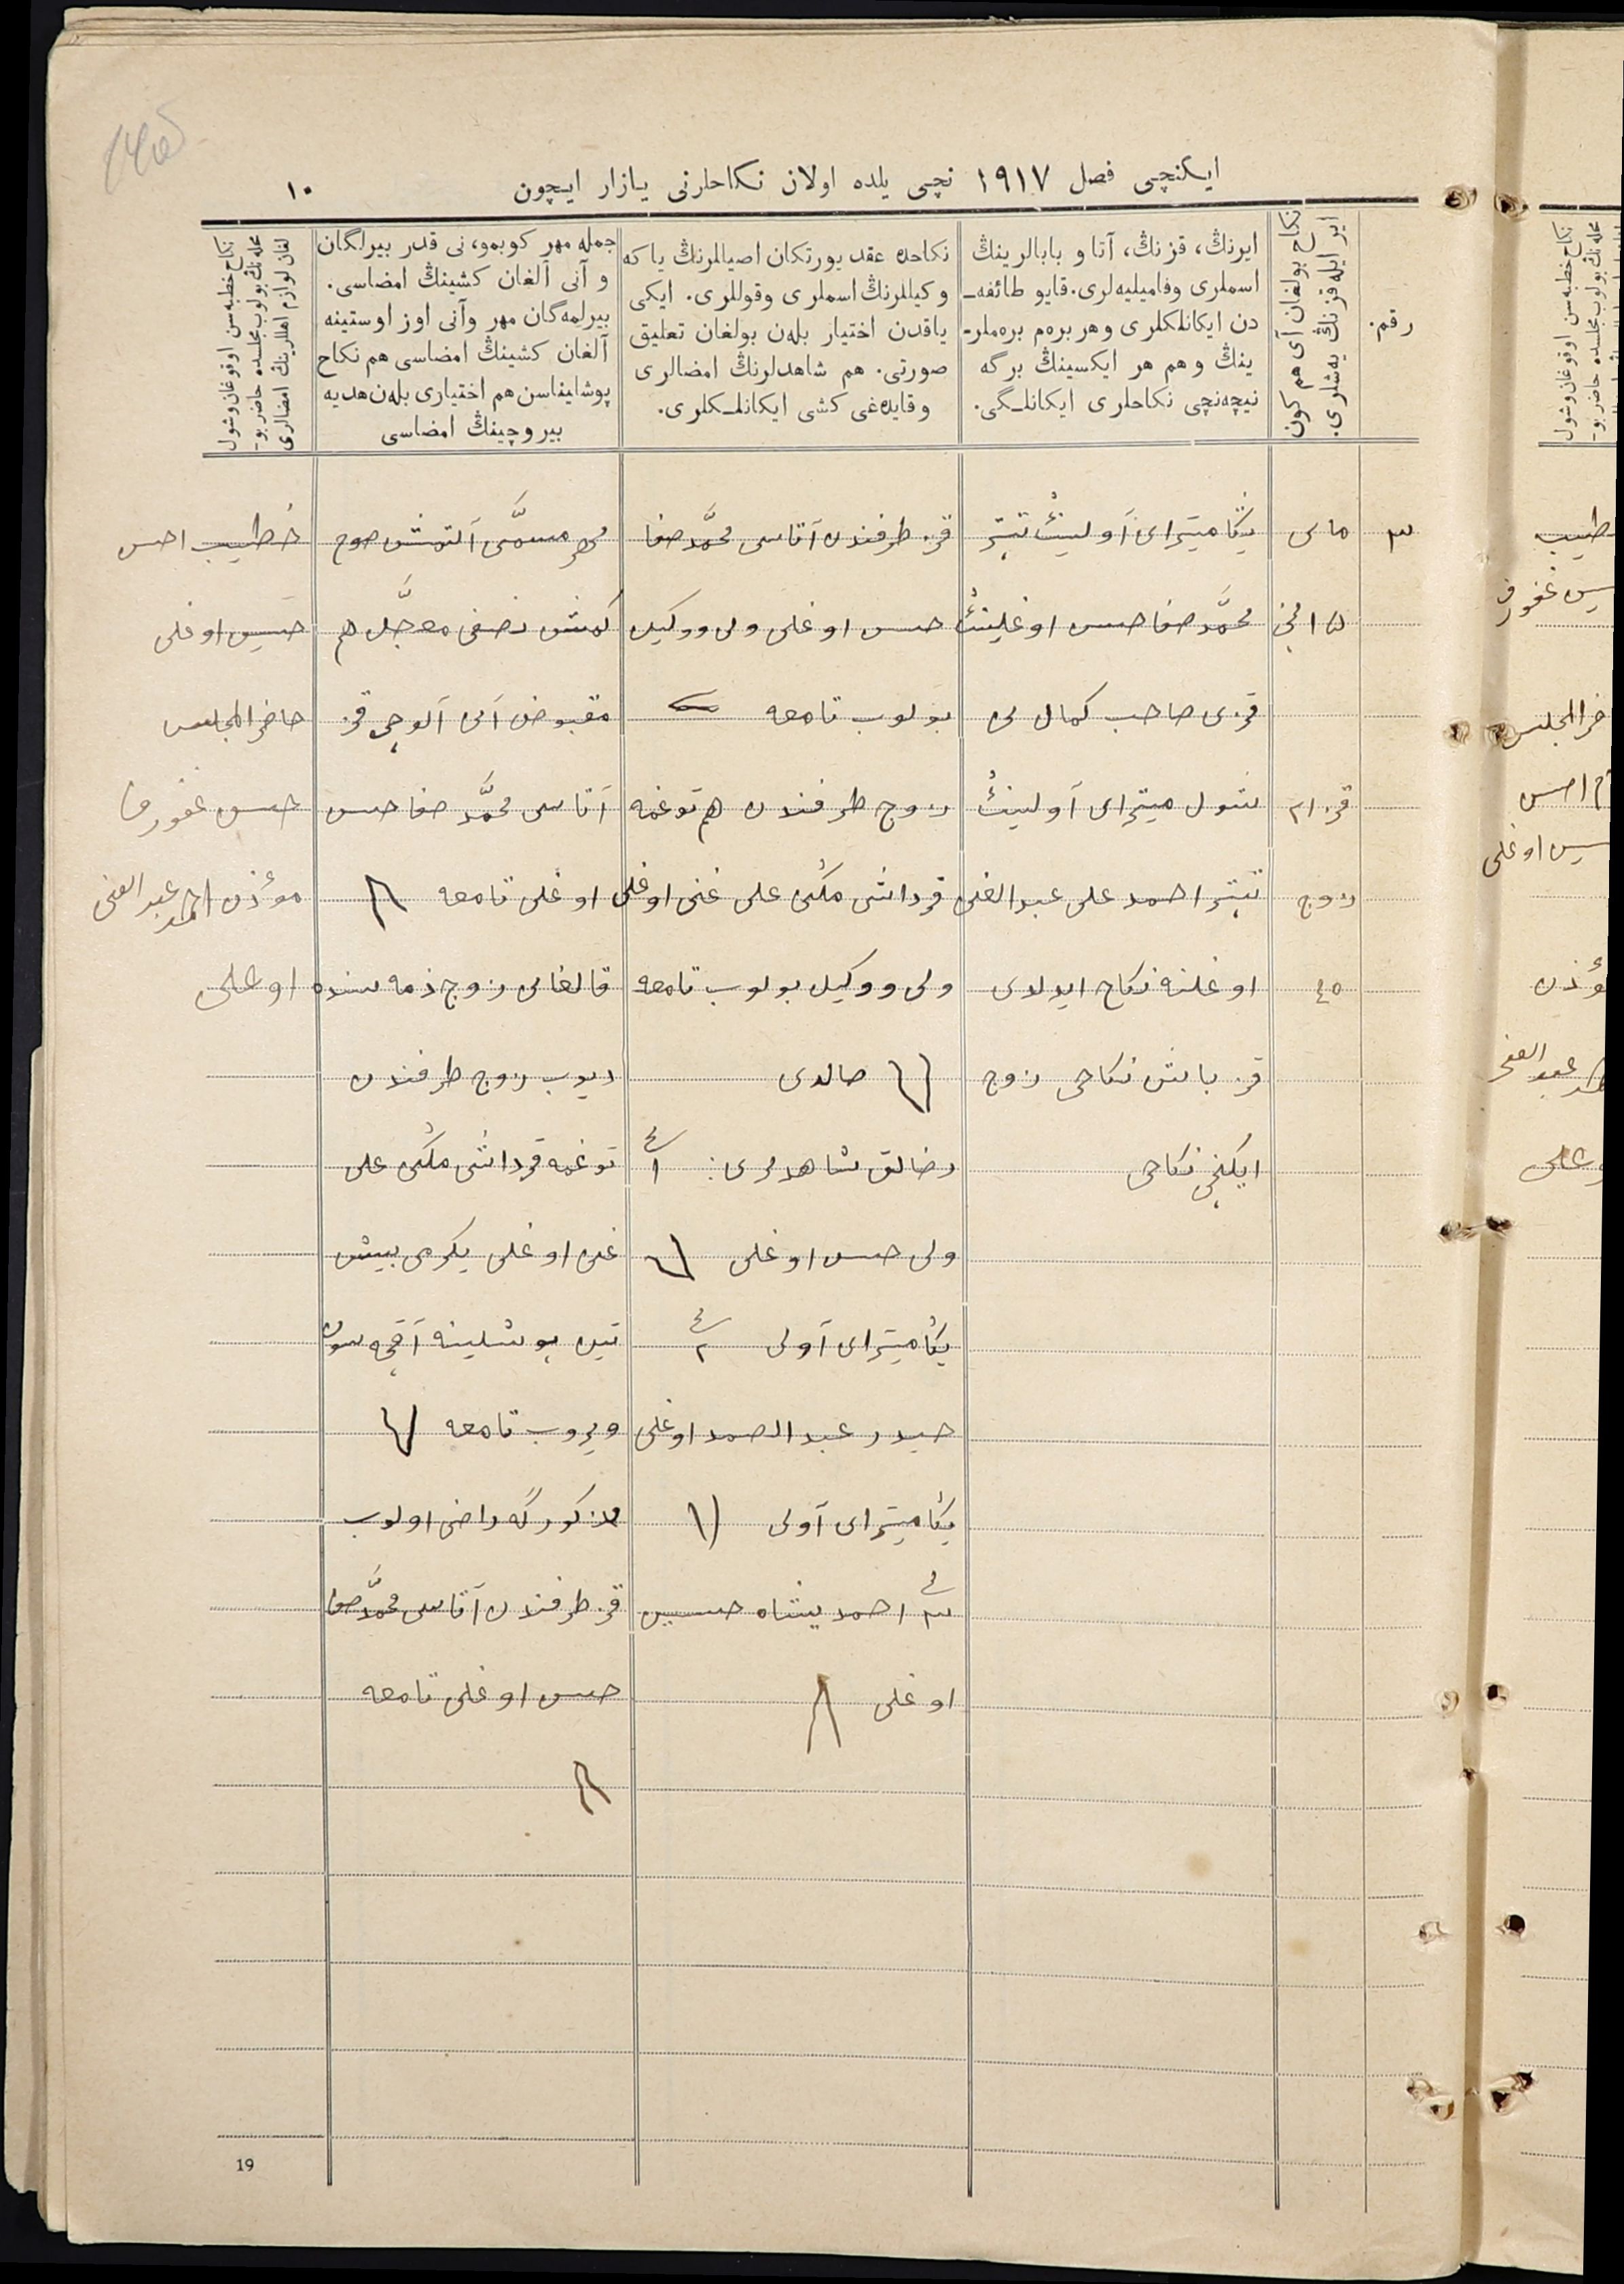 ایكنچی فصل ١٩١٧ نچی یلده اولان نكاحلرنی یازار ایچون
١٠
رقم.
نكاح بولغان آی هم كون
ایر ایله قزنڭ یه‌شلری.
ایرنڭ، قزنڭ، آتا و بابالرینڭ
اسملری وفامیلیه‌لری. قایو طائفه‌ـ
دن ایكانلكلری وهر بره‌م بره‌ملرـ
ینڭ و هم هر ایكسینڭ برگه
نیچه‌نچی نكاحلری ایكانلـگی.
نكاحده عقد یورتكان اصیاللرنڭ یا كه
وكیللرنڭ اسملری وقوللری. ایكی
یاقدن اختیار بله‌ن بولغان تعلیق
صورتی. هم شاهدلرنڭ امضالری
وقایده‌غی كشی ایكانلـكلری.
جمله مهر كوبمو، نی قدر بیرلگان
و آنی آلغان كشینڭ امضاسی.
بیرلمه‌گان مهر وآنی اوز اوستینه
آلغان كشینڭ امضاسی هم نكاح
پوشلیناسن هم اختیاری بله‌ن هدیه
بیروچینڭ امضاسی
نكاح خطبه‌سن اوقوغان وشول
محله‌نڭ بولوب مجلسده حاضر بوـ
لغان لوازم اهللرینڭ امضالری
٣
مای
١٥ نچی
قز ٢١
زوج
٤٥
یڭا میتراى آولینڭ تپتر
محمّد صفا حسن اوغلینڭ
قزی صاحب كمال نی
شول میتراى آولینڭ
تپتر احمد علی عبدالغنی
اوغلنه نكاح ایدلدی
قز باش نكاحی زوج
ایكنچی نكاحی
قز طرفندن آتاسی محمّد صفا
حسن اوغلی ولی ووكیل
بولوب تامعه
زوج طرفندن هم توغمه
قرداشی ملكی علی غنی اوغلی
ولی ووكیل بولوب تامعه
صالدی
رضالق شاهدلری: ١
ولی حسن اوغلی
یڭا میتراى آولی ٢
حیدر عبدالصمد اوغلی
یڭا میتراى آولی
٣ احمد یشاه حسین
اوغلی
مهر مسمّی آلتمش صوم
كمش نصفی معجّل هم
مقبوض آنی آلوچی قز
آتاسی محمّد صفا حسن
اوغلی تامعه
قالغانی زوج ذمه سنده
دیوب زوج طرفندن
توغمه قرداشی ملكی علی
غنی اوغلی یكرمی بیش
تین پوشلینه آقچه سون
ویروب تامعه
مذكورگه راضی اولوب
قز طرفندن آتاسی محمّد صفا
حسن اوغلی تامعه
خطیب احسن
حسین اوغلی
حاضر المجلس
حسن غفورف
موٴذن احمد عبدالغنی
اوغلی
19